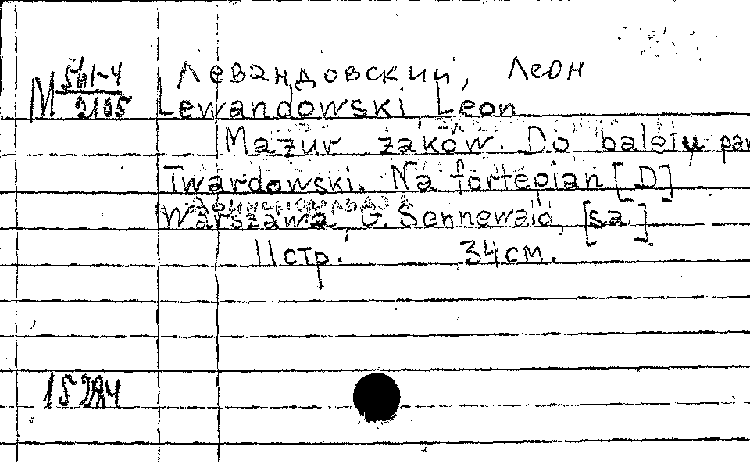 Левандовский, Леон
М 561-4/2105
Lewandowski Leon
Mazur żaków. Do baletu pan
Twardowski. Na fortepian [D]
Warszawa, G. Sennewald, [sa]
11 стр. 34 см.
15284